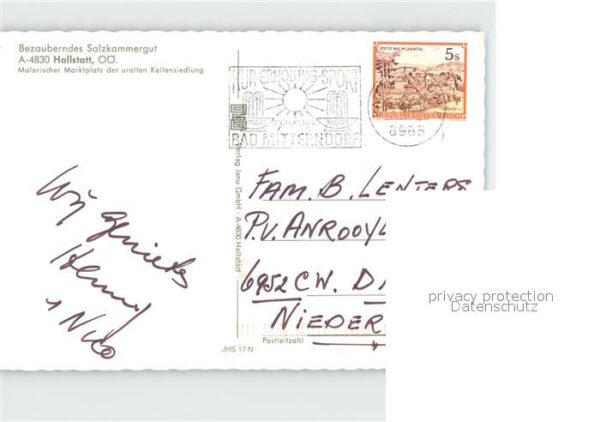 Bezauberndes Salzkammergut
A-4830 Hallstatt, OÖ.
Malerischer Marktplatz der uralten Keltensiedlung
STIFT ST. PAUL IM LAVANTTAL
5s
REPUBLIK ÖSTERREICH
KUR-ERHOLUNG-SPORT
BAD MITTERNDORF
8983
Verlag Janu GmbH - A-4830 Hallstatt
Wij genieten
Henny
+ Nico
FAM. B. LENTERS
P.V. ANROOY
6952 CW. D
NIEDER
Postleitzahl
JHS 17 N
privacy protection
Datenschutz